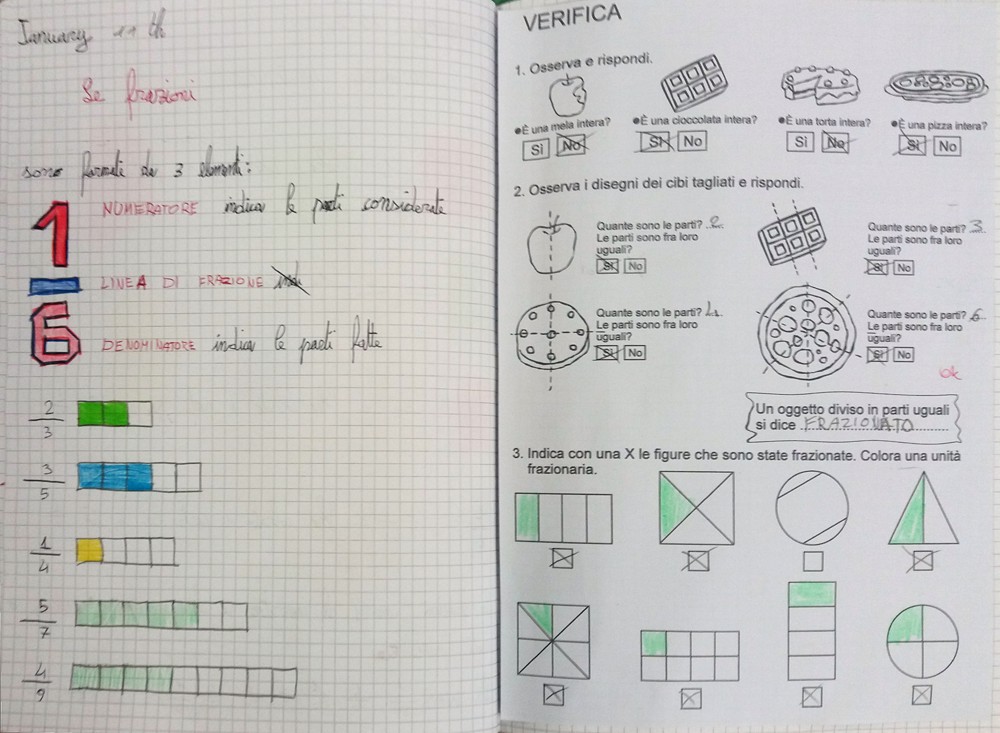 January 11 th
Le frazioni
sono formate da 3 elementi:
1 NUMERATORE indica le parti considerate
LINEA DI FRAZIONE
6 DENOMINATORE indica le parti fatte
2
3
3
5
1
4
5
7
4
9
VERIFICA
1. Osserva e rispondi.
●È una mela intera?
Sì No
●È una cioccolata intera?
Sì No
●È una torta intera?
Sì No
●È una pizza intera?
Sì No
2. Osserva i disegni dei cibi tagliati e rispondi.
Quante sono le parti? 2
Le parti sono fra loro
uguali?
Sì No
Quante sono le parti? 3
Le parti sono fra loro
uguali?
Sì No
Quante sono le parti? 4
Le parti sono fra loro
uguali?
Sì No
Quante sono le parti? 6
Le parti sono fra loro
uguali?
Sì No
ok
Un oggetto diviso in parti uguali
si dice FRAZIONATO
3. Indica con una X le figure che sono state frazionate. Colora una unità
frazionaria.